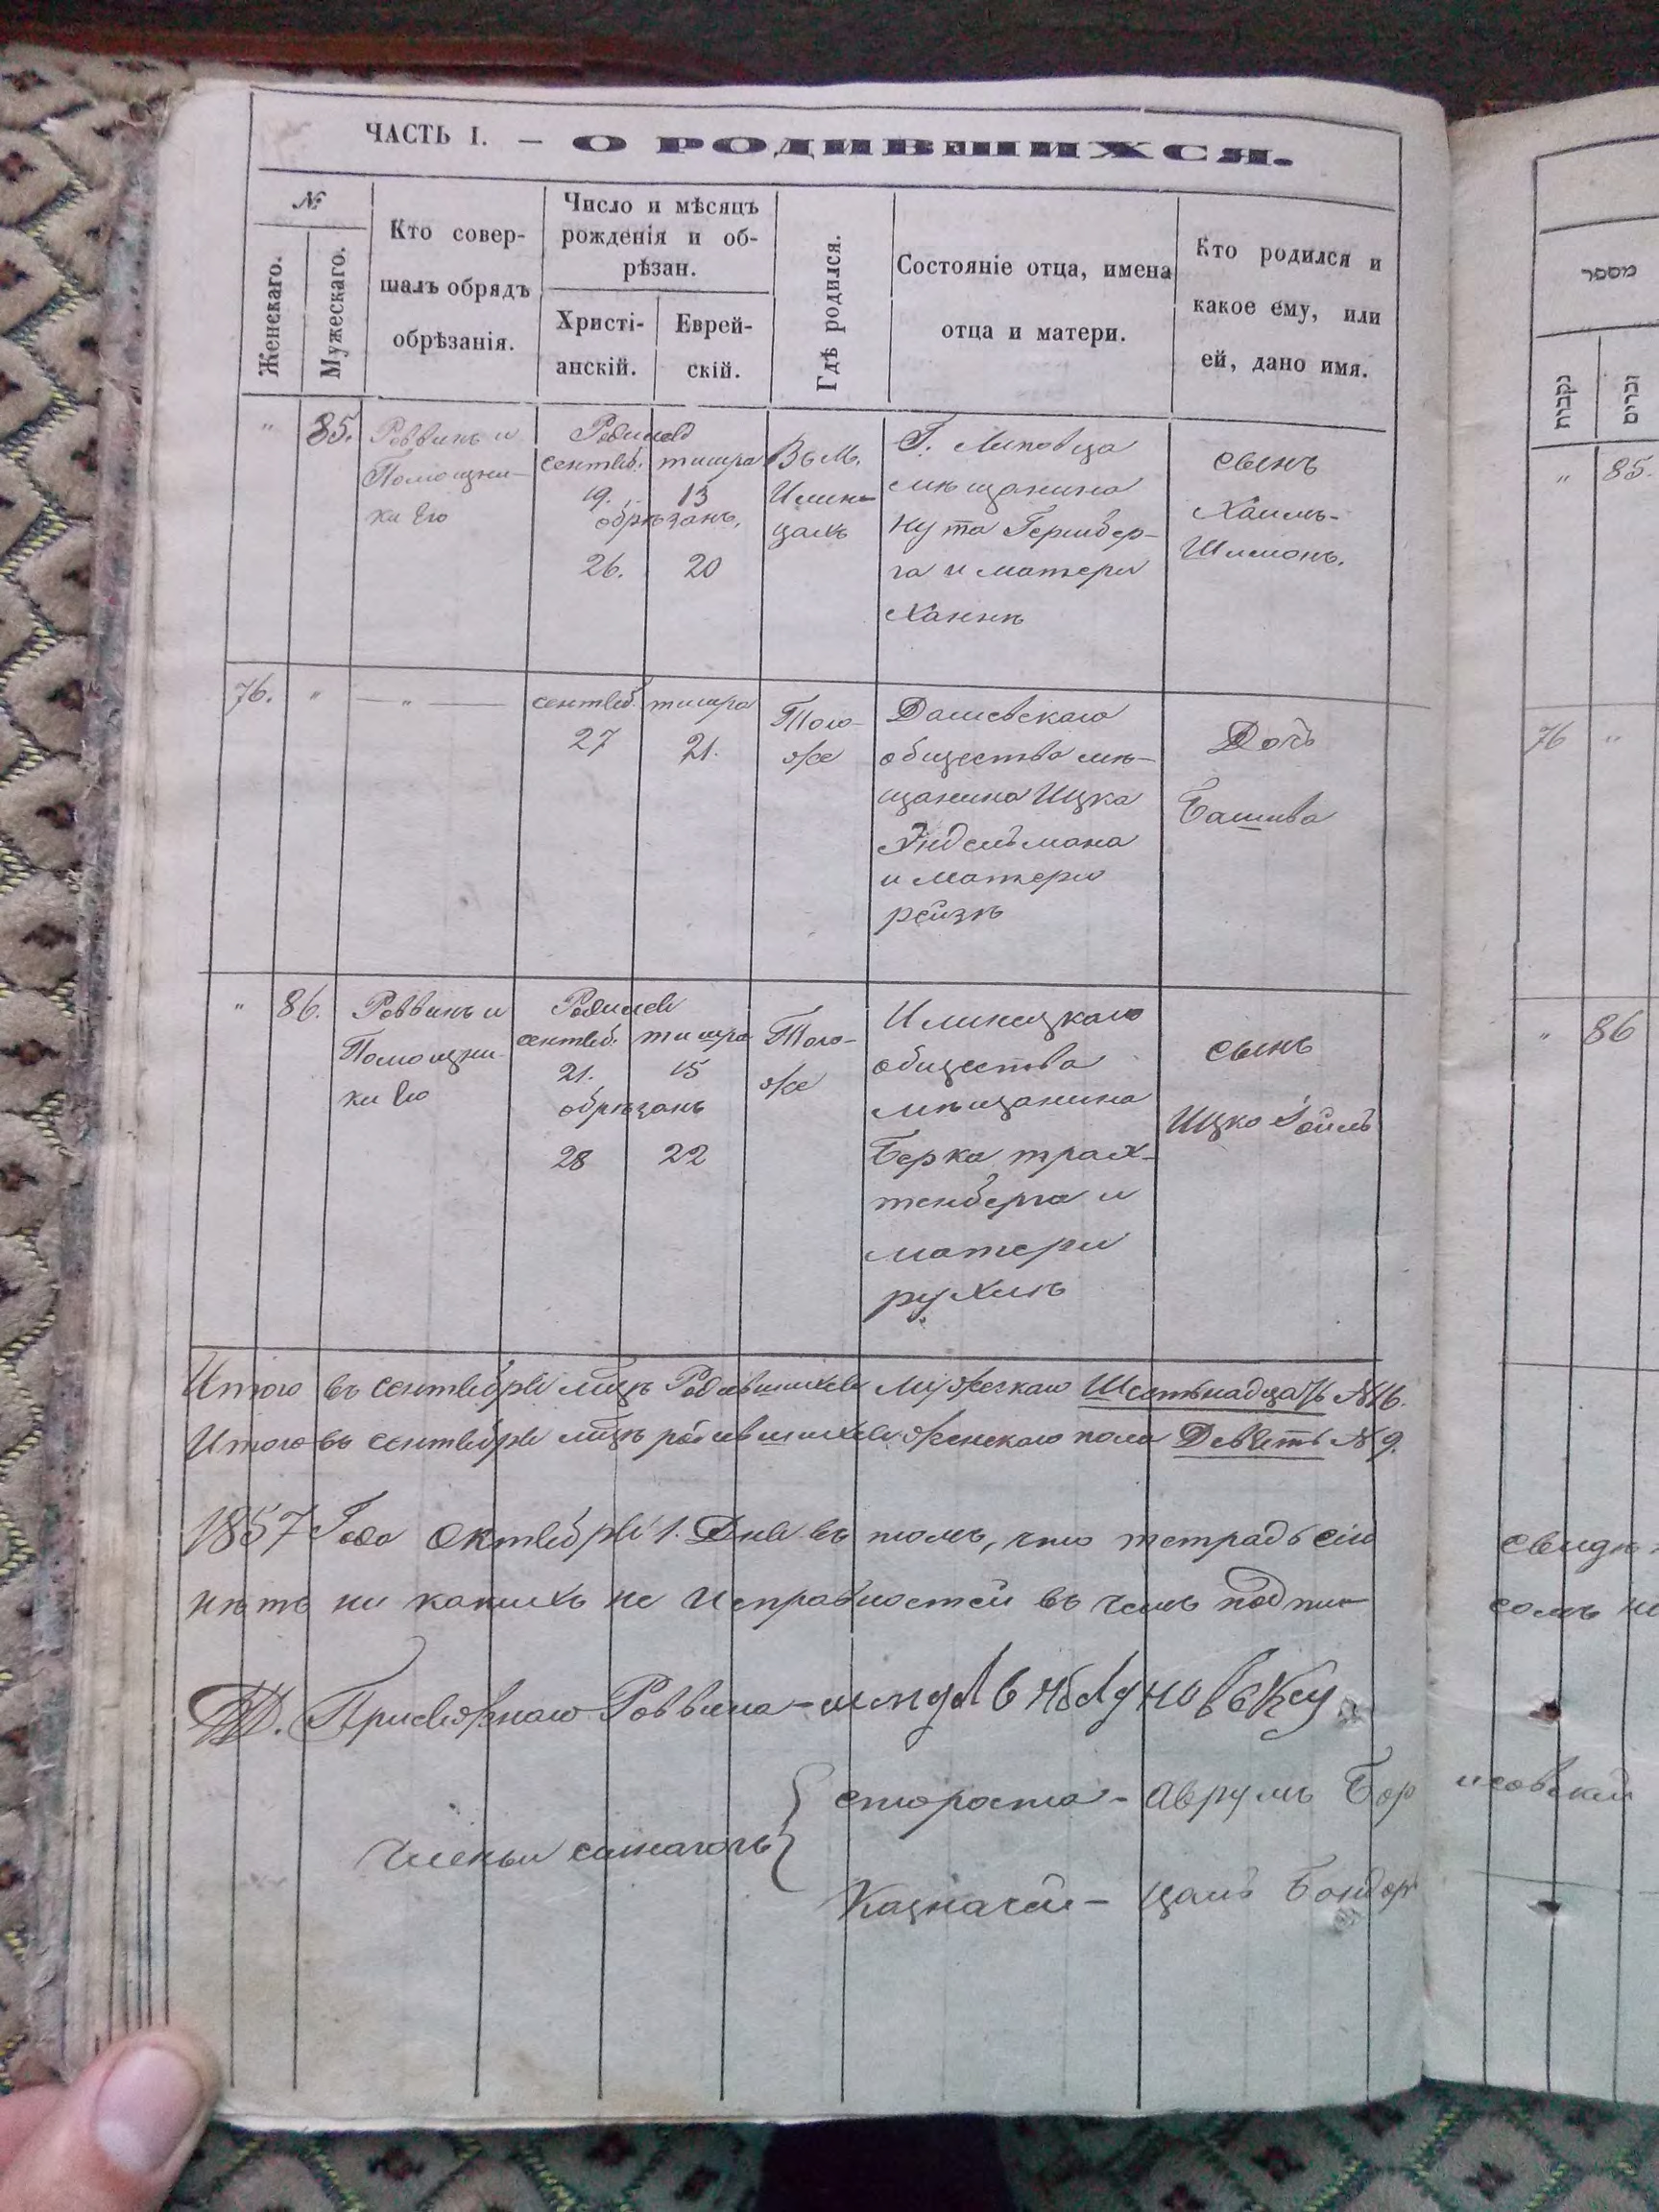 ЧАСТЬ I. — О РОДИВШИХСЯ.
№
Женскаго.
Мужескаго.
Кто совер-
шалъ обрядъ
обрѣзанія.
Число и мѣсяцъ
рожденія и об-
рѣзан.
Христі-
анскій.
Еврей-
скій.
Гдѣ родился.
Состояніе отца, имена
отца и матери.
Кто родился и
какое ему, или
ей, дано имя.
" 85.
Раввинъ и
Помощни-
ки Его
Родился
сентяб. тишра
19. 13
обрѣзанъ,
26. 20
Въ М.
Илин-
цахъ
Г. Липовца
мѣщанина
Нута Гершбер-
га и матери
Ханнѣ
сынъ
Хаимъ-
Шлионъ.
76. " — " —
сентяб. тишра
27 21.
Того-
же
Дашевскаго
общества мѣ-
щанина Ицка
Эндельмана
и матери
рейзѣ
Дочь
Башива
" 86.
Раввинъ и
Помощни-
ки Его
Родился
сентяб. тишра
21. 15
обрѣзанъ
28 22
Того-
же
Илинецкаго
общества
мѣщанина
Берка трах-
тенберга и
матери
рухлѣ
сынъ
Ицко Іойлъ
Итого въ сентябрѣ мцѣ Родившихся мужескаго Шестьнадцать №16.
Итого въ сентябрѣ мцѣ родившихся женскаго пола Девять №9.
1857 Года Октября 1. Дня въ томъ, что тетрадь сія
нѣтъ ни какихъ не исправностей въ чемъ подпи-
Присяжнаго Раввина -
члены синагогъ
староста - Аврумъ Бор
Казначей - Бондар
מספר
נקבות
זכרים
" 85.
76 "
" 86
свидѣ